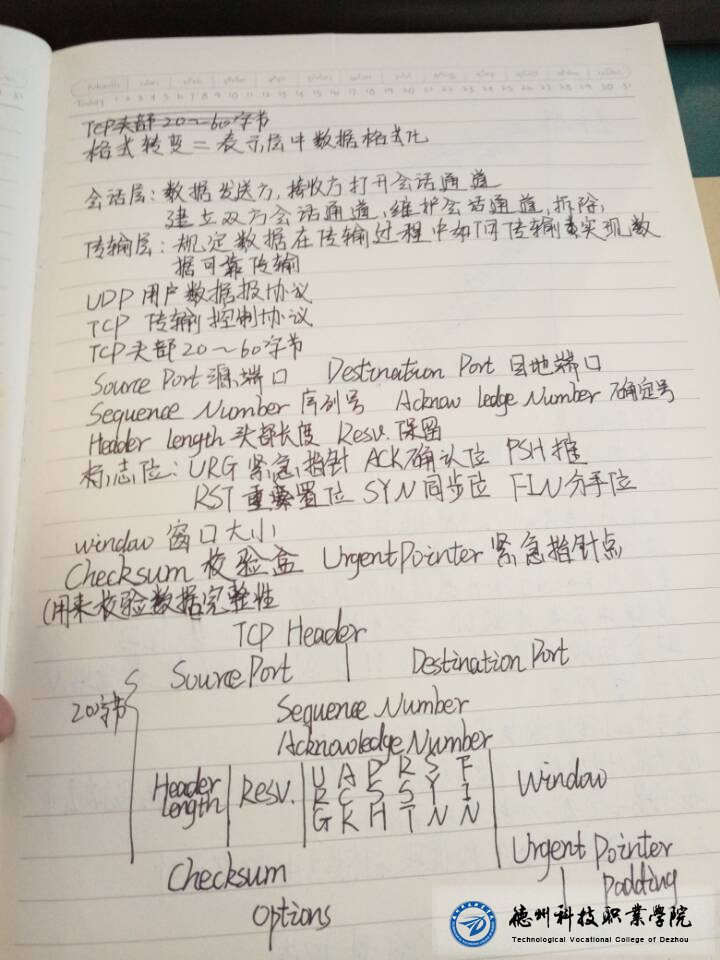 TCP头部20～60字节
格式转变=表示层中数据格式化
会话层:数据发送方,接收方打开会话通道
建立双方会话通道,维护会话通道,拆除,
传输层:规定数据在传输过程中如何传输 实现数
据可靠传输
UDP 用户数据报协议
TCP 传输控制协议
TCP头部20～60字节
Source Port 源端口 Destination Port 目地端口
Sequence Number 序列号 Acknow ledge Number 确定号
Header length 头部长度 Resv. 保留
标志位:URG 紧急指针 ACK 确认位 PSH 推
RST 重置位 SYN 同步位 FIN 分手位
window 窗口大小
Checksum 校验盒 Urgent Pointer 紧急指针点
(用来校验数据完整性
TCP Header
Source Port Destination Port
20字节 Sequence Number
Acknowledge Number
Header Length Resv. URG ACK PSH RST SYN FIN Window
Checksum Urgent Pointer
Options Padding
德州科技职业学院
Technological Vocational College of Dezhou